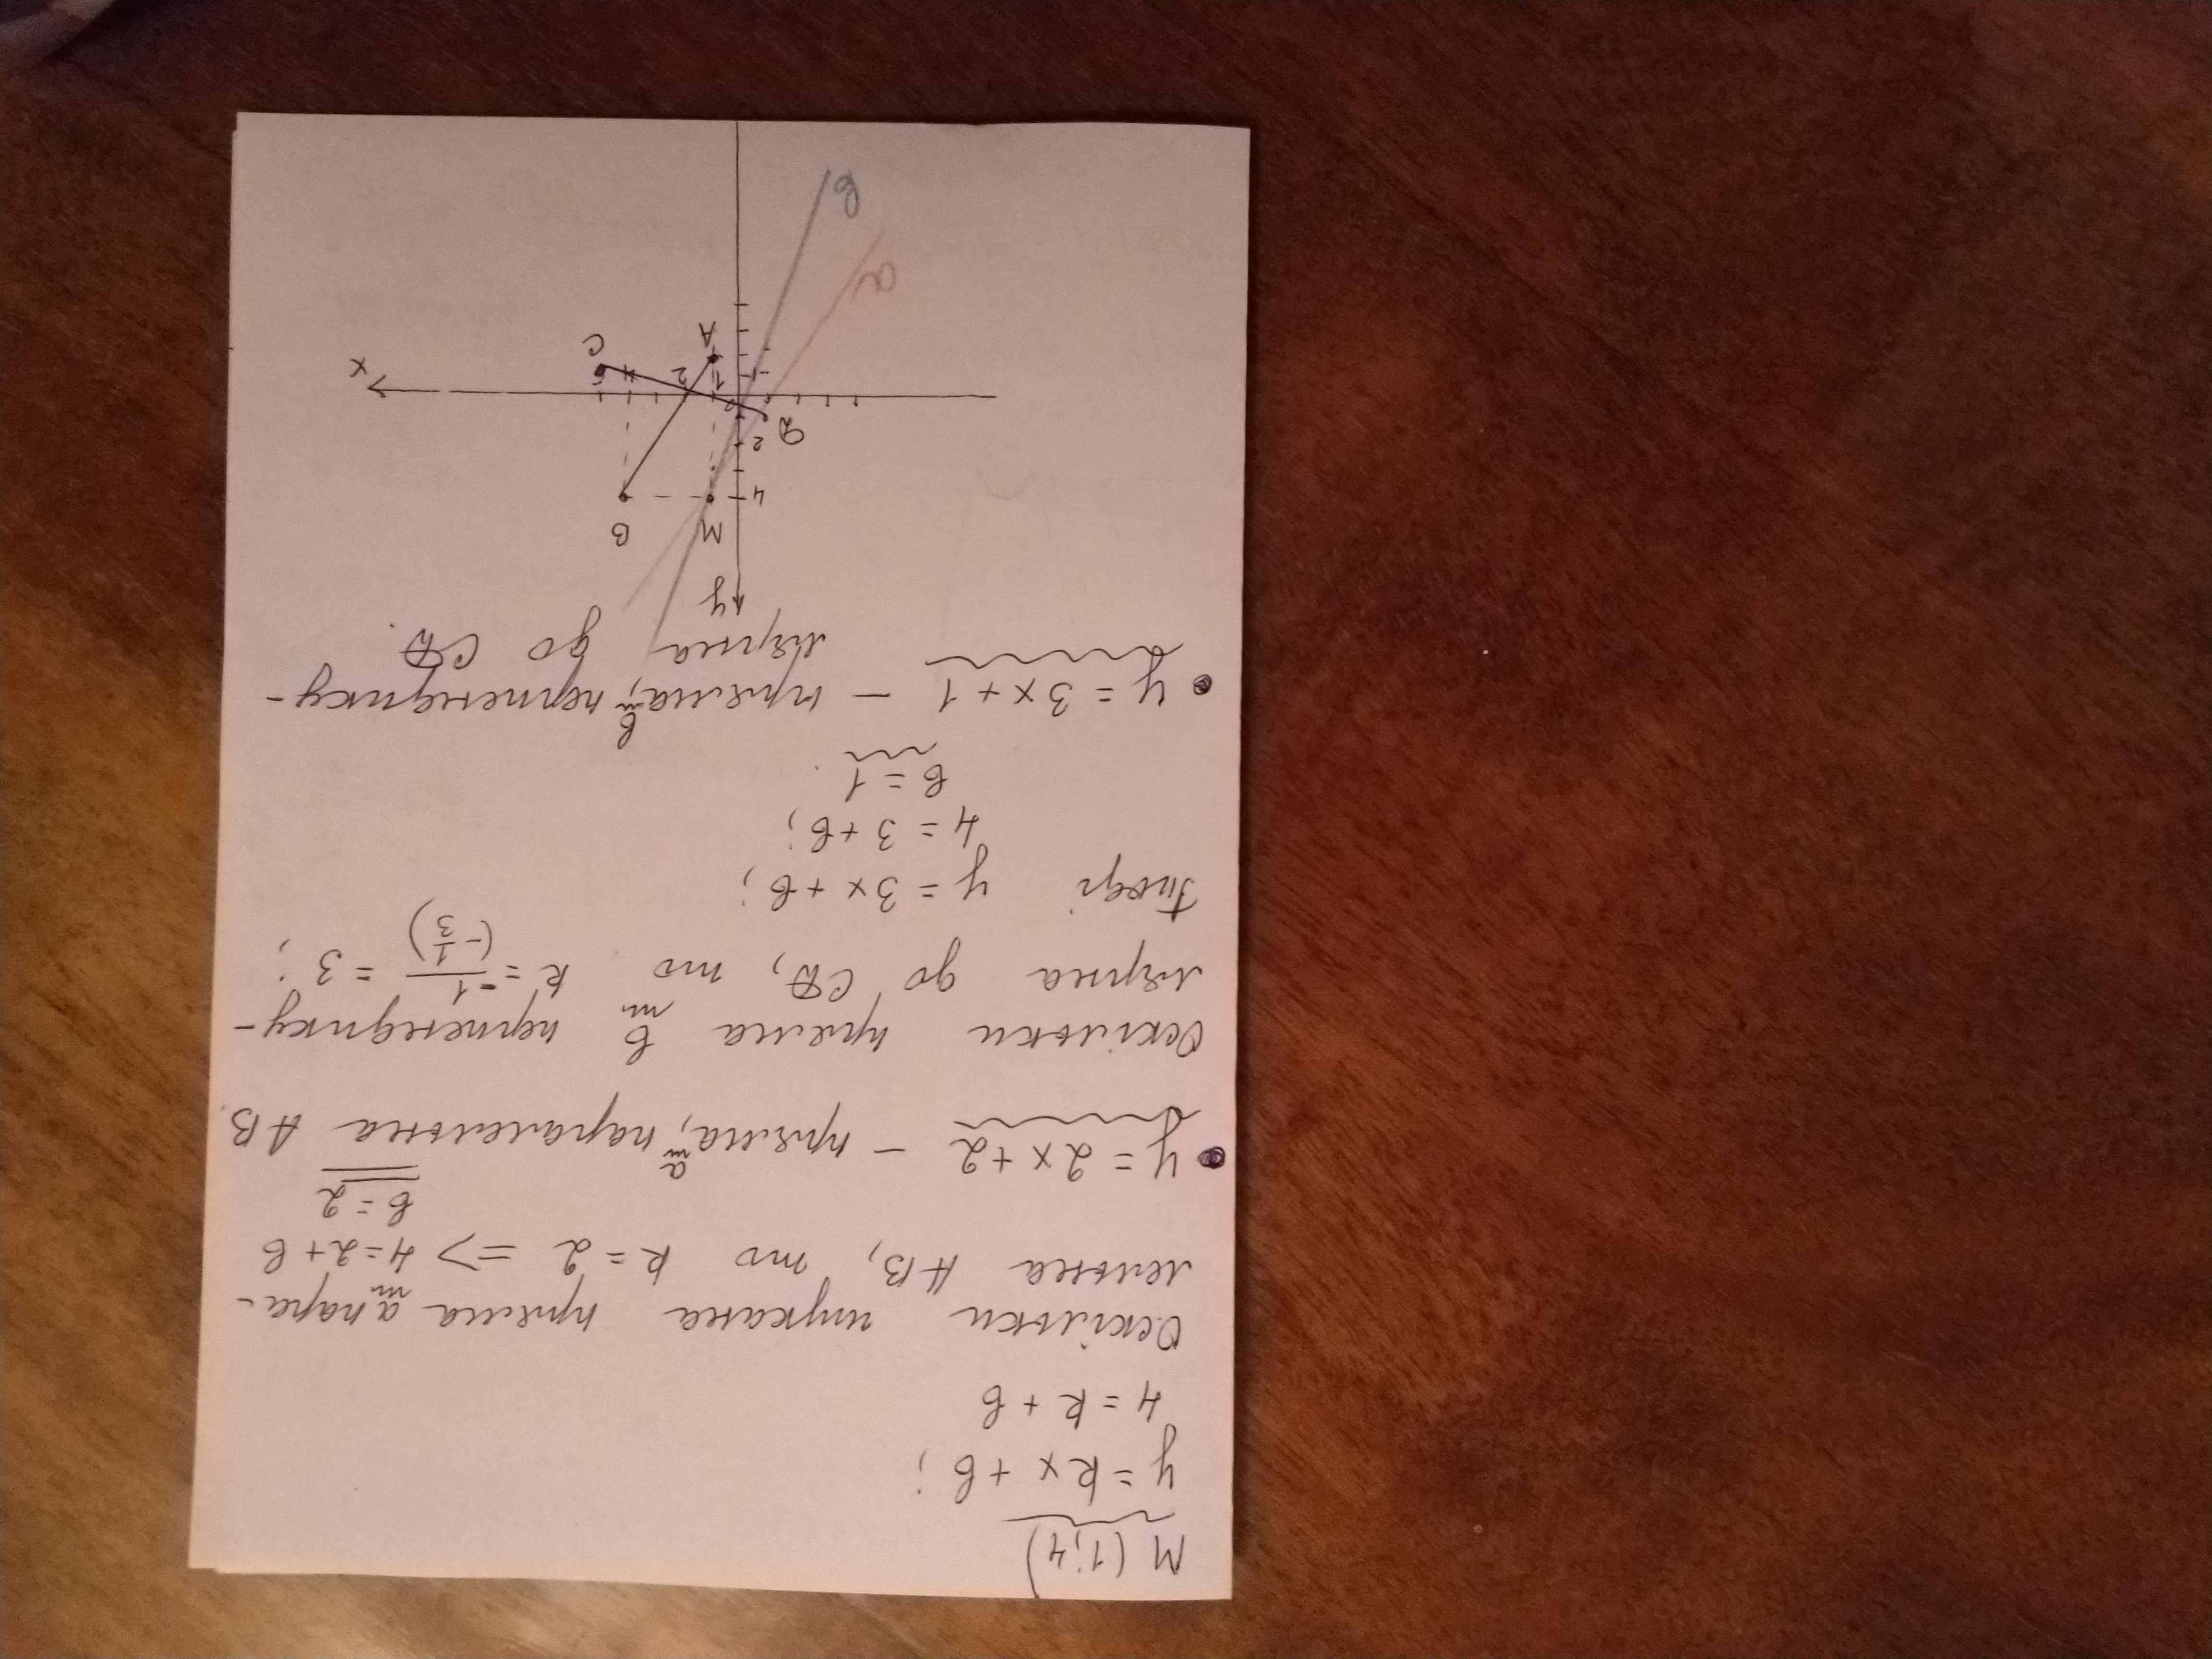 M (1; 4)
y = kx + b;
4 = k + b
Оскільки шукана пряма a пара-
лельна AB, то k = 2 => 4 = 2 + b
b = 2
• y = 2x + 2 – пряма, a паралельна AB
Оскільки пряма b перпендику-
лярна до CD, то k = -1/(-1/3) = 3;
Тоді y = 3x + b;
4 = 3 + b;
b = 1.
• y = 3x + 1 – пряма, b перпендику-
лярна до CD.
y
M B
4
2
D
0 1 2 4 5 x
-1
A C
a
b